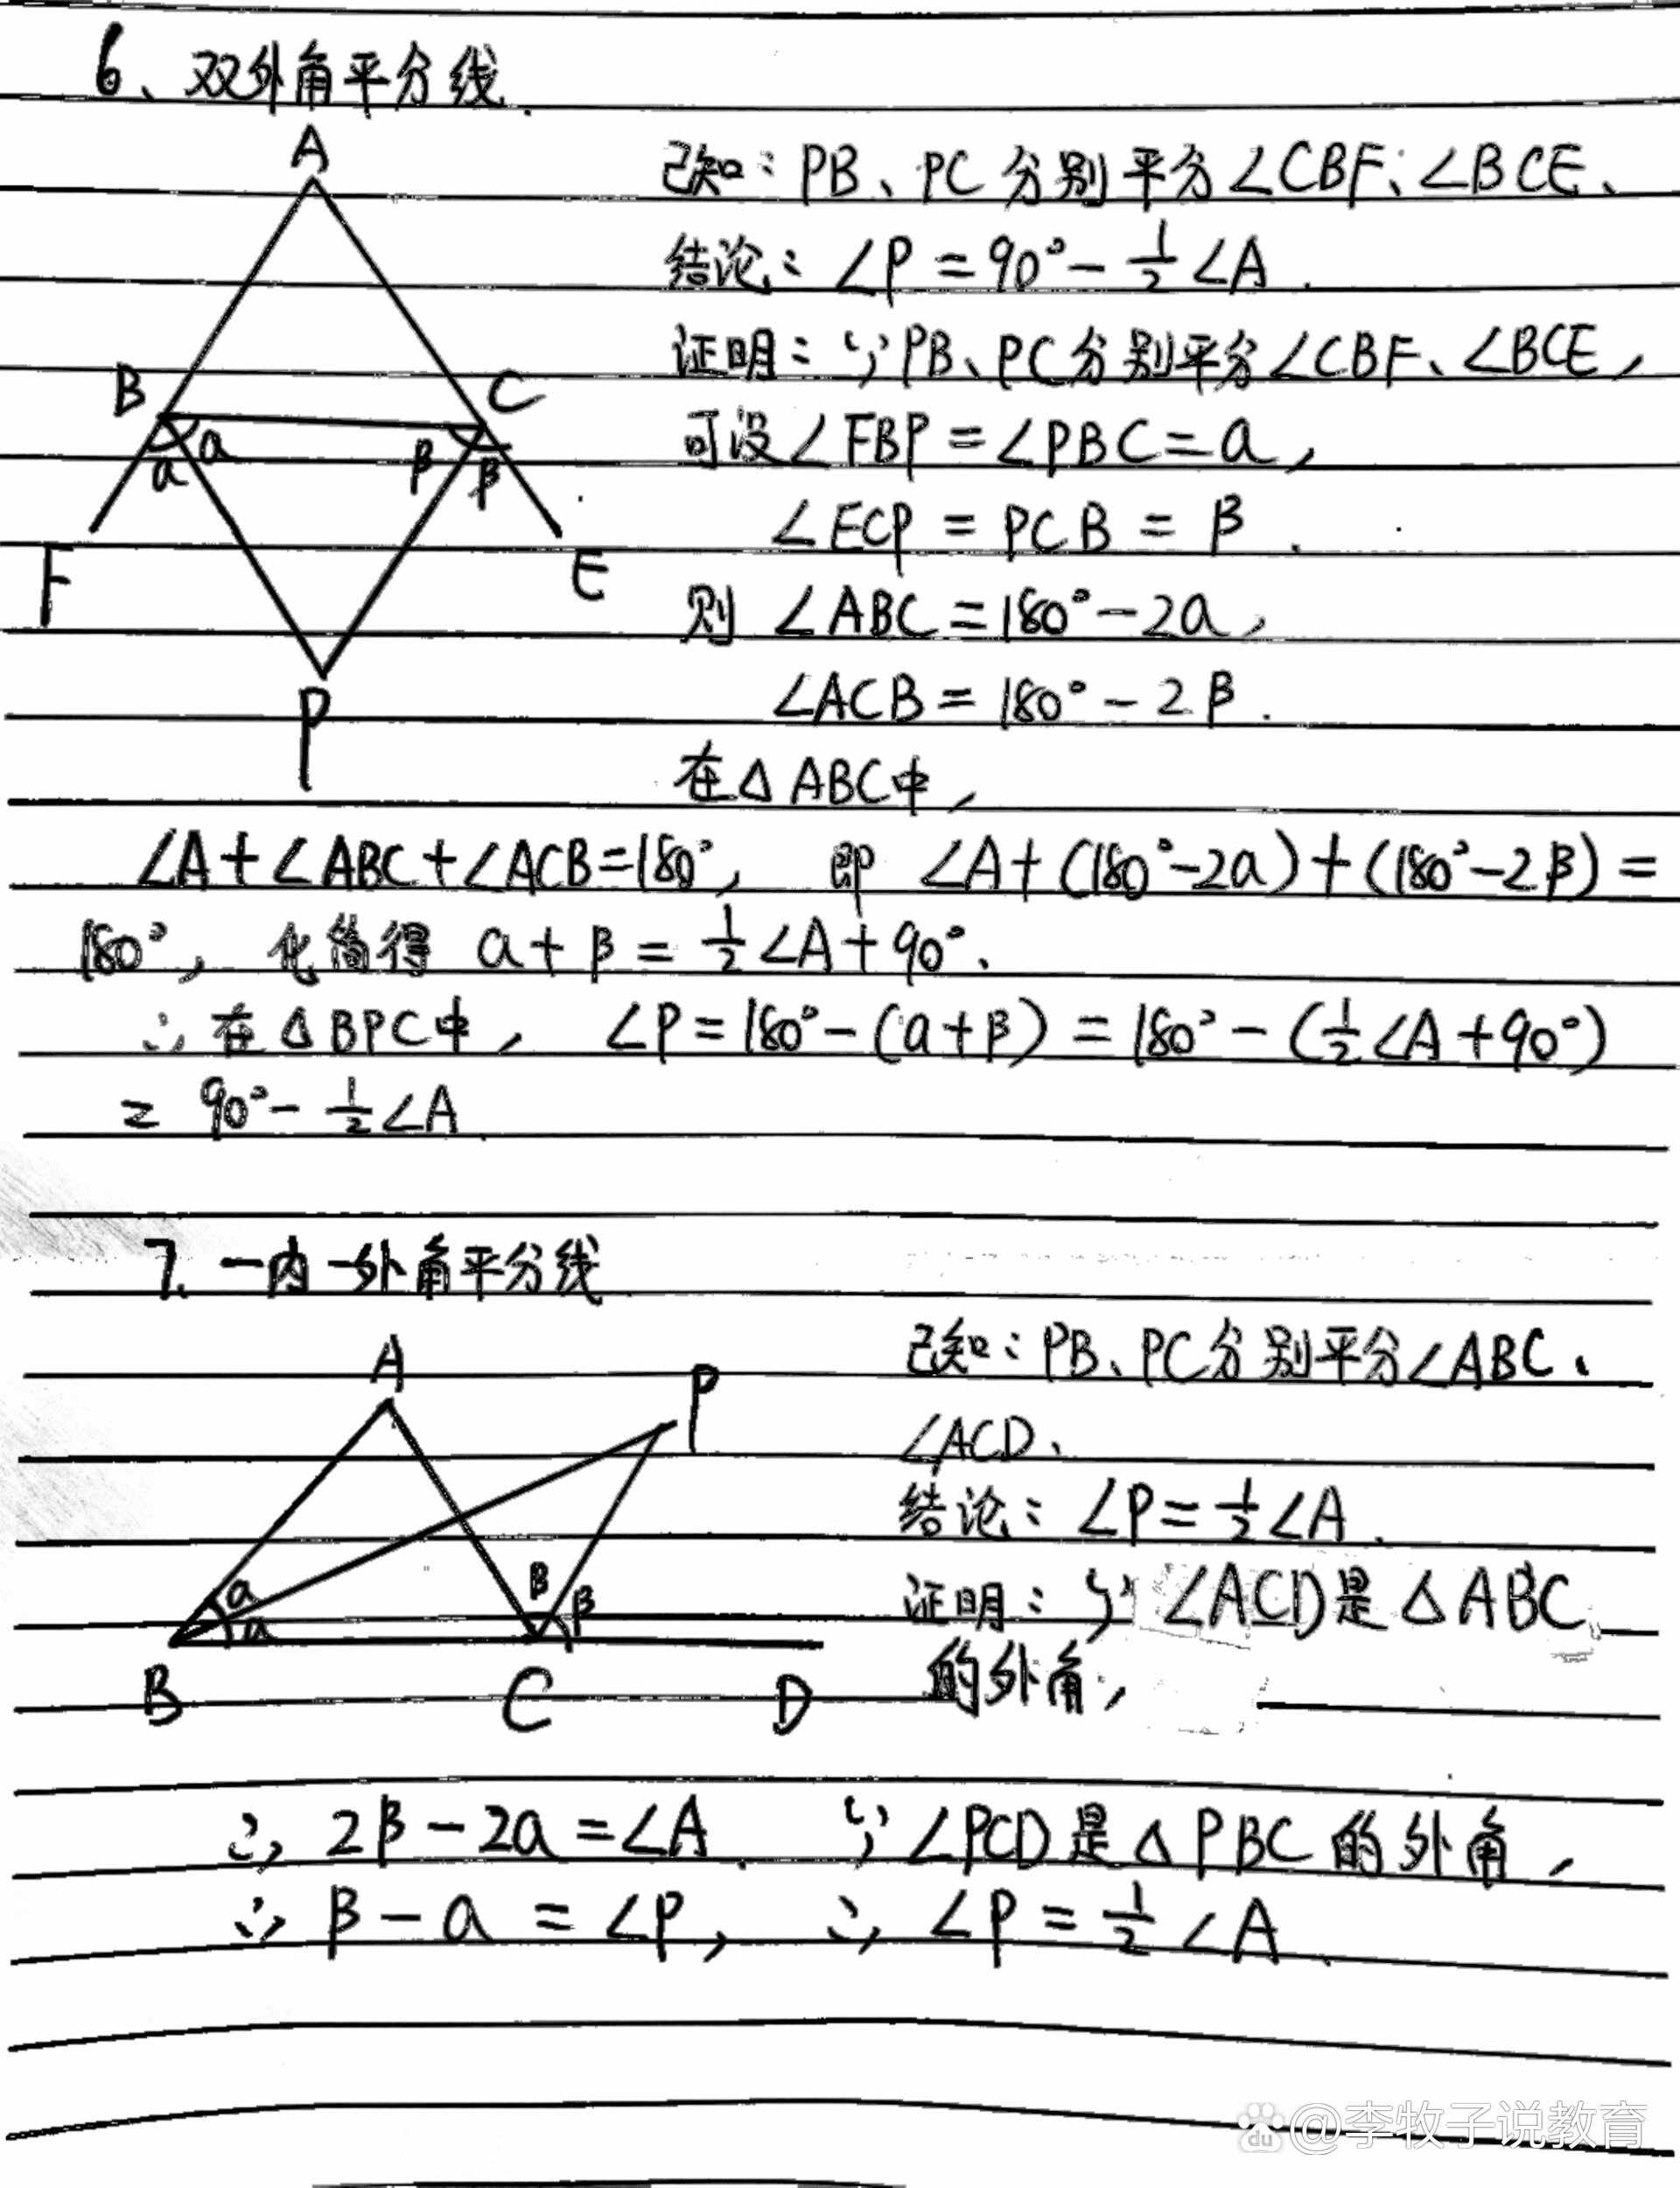 6、双外角平分线.
A
B
C
a
a
β
β
F
E
P
已知：PB、PC分别平分∠CBF、∠BCE、
结论：∠P=90°-1/2∠A.
证明：∵PB、PC分别平分∠CBF、∠BCE，
可设∠FBP=∠PBC=a，
∠ECP=PCB=β.
则∠ABC=180°-2a，
∠ACB=180°-2β.
在△ABC中，
∠A+∠ABC+∠ACB=180°，即∠A+(180°-2a)+(180°-2β)=
180°，化简得 a+β=1/2∠A+90°.
∴在△BPC中，∠P=180°-(a+β)=180°-(1/2∠A+90°)
=90°-1/2∠A.
7.一内一外角平分线
A
P
a
a
β
β
B
C
D
已知：PB、PC分别平分∠ABC、
∠ACD、
结论：∠P=1/2∠A.
证明：∵∠ACD是△ABC
的外角，
∴2β-2a=∠A. ∵∠PCD是△PBC的外角，
∴β-a=∠P，∴∠P=1/2∠A.
du @李牧子说教育